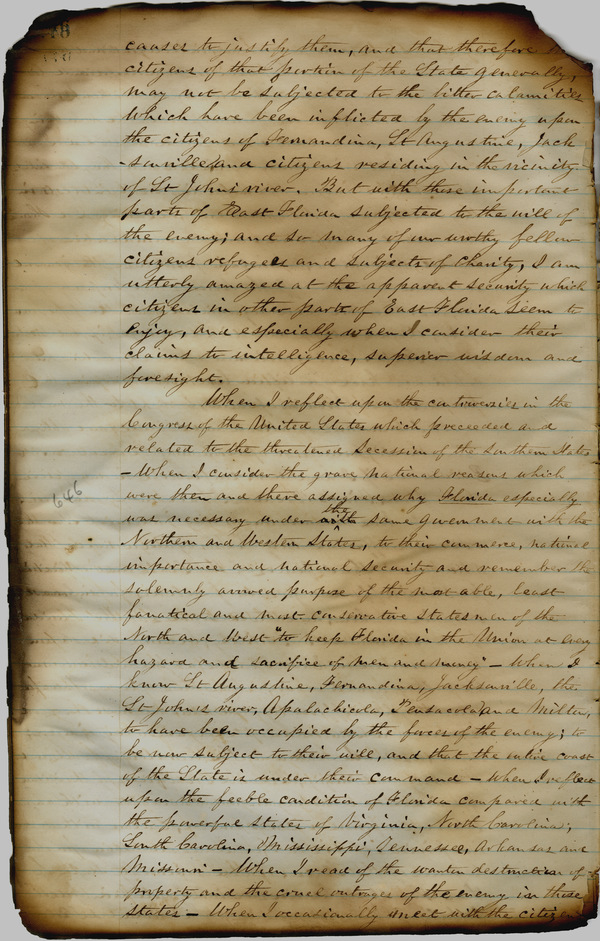 causes to justify them, and that therefore
citizens of that portion of the State generally,
may not be subjected to the bitter calamities
which have been inflicted by the enemy upon
the citizens of Fernandina, St Augustine, Jack
-sonville, and citizens residing in the vicinity
of St John's river. But with these important
parts of East Florida subjected to the will of
the enemy; and so many of our worthy fellow
citizens refugees and subjects of charity, I am
utterly amazed at the apparent security which
citizens in other parts of East Florida seem to
enjoy, and especially when I consider their
claims to intelligence, superior wisdom and
foresight.
When I reflect upon the controversies in the
Congress of the United States which preceeded and
related to the threatened Secession of the Southern States
- When I consider the grave national reasons which
were then and there assigned why Florida especially
was necessary under the same government with the
Northern and Western States, to their commerce, national
importance and national security and remember the
solemnly avowed purpose of the most able, least
fanatical and most conservative statesmen of the
North and West "to keep Florida in the Union at every
hazard and sacrifice of men and money" - When I
know St Augustine, Fernandina, Jacksonville, the
St John's river, Apalachicola, Pensacola, and Milton,
to have been occupied by the forces of the enemy; to
be now subject to their will, and that the entire coast
of the State is under their command - When I reflect
upon the feeble condition of Florida compared with
the powerful states of Virginia, North Carolina;
South Carolina, Mississippi, Tennessee, Arkansas and
Missouri - When I read of the wanton destruction of
property and the cruel outrages of the enemy in those
states - When I occasionally meet with the citizens
646